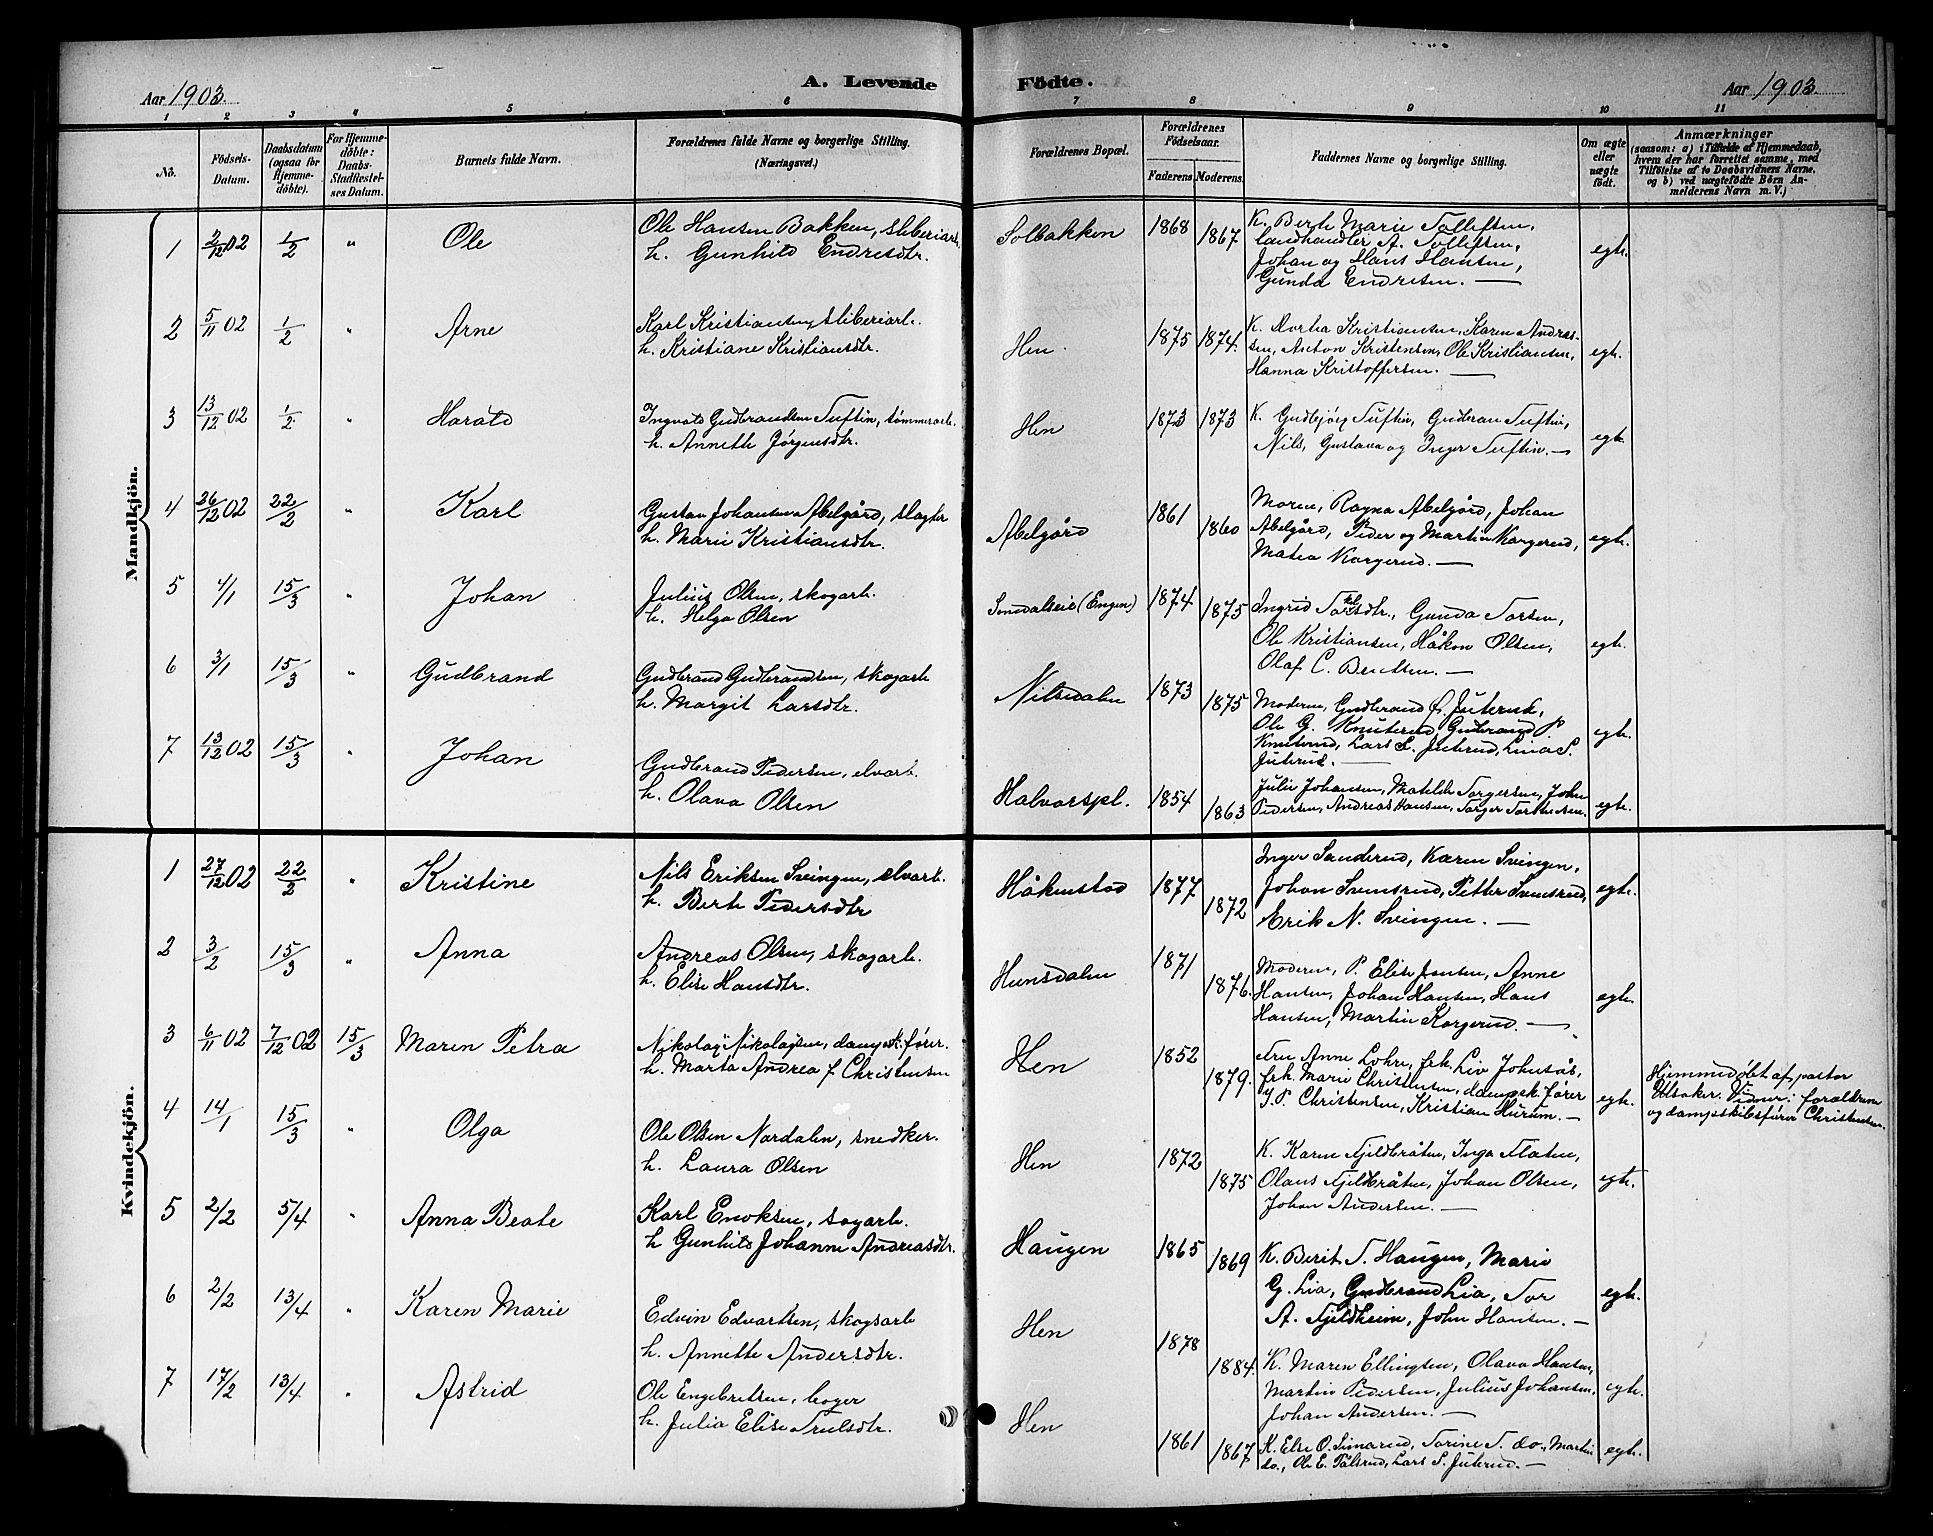 Aar 1903. A. Levende Födte. Aar 1903.
1 2 3 4 5 6 7 8 9 10 11
No. Födsels-Datum. Daabsdatum (ogsaa for Hjemmedöbte). For Hjemmedöbte: Daabs-Stadfæstelses Datum. Barnets fulde Navn. Forældrenes fulde Navne og borgerlige Stilling. (Næringsvei.) Forældrenes Bopæl. Forældrenes Födselsaar. Faderens. Moderens. Faddernes Navne og borgerlige Stilling. Om ægte eller uægte födt. Anmærkninger (saasom: a) i Tilfælde af Hjemmedaab, hvem der har forrettet samme, med Tilföielse af to Daabsvidners Navne, og b) ved uægtefödte Börn Anmelderens Navn m. V.)
Mandkjön.
1 2/12 02 1/2 " Ole Ole Hansen Bakken, sliberiarb. Solbakken 1868 1867 K. Berthe Marie Tollefsen,
h. Gunhild Endresdtr. landhandler A. Tollefsen, egte.
Johan og Hans Hansen,
Gunda Endresen. —
2 5/11 02 1/2 " Arne Karl Kristiansen, sliberiarb. Hen 1875 1874. K. Dortha Kristiansen, Karen Andreas-
h. Kristiane Kristiansdtr. sen, Anton Kristensen, Ole Kristiansen, egte.
Hanna Kristoffersen. —
3 13/12 02 1/2 " Harald Ingvald Gudbrandsen Tuftin, tømmerarb. Hen 1873 1873 K. Gudbjørg Tuftin, Gudbran Tuftin,
h. Annette Jørgensdtr. Nils, Gustava og Inger Tuftin. — egte.
4 26/12 02 22/2 " Karl Gustav Johansen Abelgård, slagter Abelgård 1861 1860 Moren, Ragna Abelgård, Johan
h. Marie Kristiansdtr. Abelgård, Peder og Martin Korgerud, egte.
Matea Korgerud. —
5 4/1 15/3 " Johan Julius Olsen, skogarb. (Engen) 1874 1875 Ingrid Gunda Torsen,
h. Helga Olsen Ole Kristiansen, Håkon Olsen, egte.
Olaf C. Bentsen. —
6 3/1 15/3 " Gudbrand Gudbrand Gudbrandsen, skogarb Nilsedalen 1873 1875 Moderen, Gudbrand Juterud,
h. Margit Larsdtr. Ole G. Knuterud, Gudbrand P. egte.
Knuterud, Lars S. Juterud, Lina S.
Juterud. —
7 13/12 02 15/3 " Johan Gudbrand Pedersen, elvarb. Halvorspl. 1854 1863 Julie Johansen, Matilde Torgersen, John
h. Olava Olsen Pedersen, Andreas Hansen, Torger Torstensen. egte.
Kvindekjön.
1 27/12 02 22/2 " Kristine Nils Eriksen Svingen, elvarb. Håkenstad 1877 1872 Inger Sanderud, Karen Svingen,
h. Berte Pedersdtr Johan Svensrud, Petter Svensrud, egte.
Erik N. Svingen. —
2 3/2 15/3 " Anna Andreas Olsen, skogarb. Hunsdalen 1871 1876. Moderen, P. Elise Jensen, Anne
h. Elise Hansdtr. Hansen, Johan Hansen, Hans egte.
Hansen, Martin Korgerud. —
3 6/11 02 7/12 02 15/3 Maren Petra Nikolaj Nikolajsen, dampsk.fører. Hen 1852 1879. Fru Anne Lohre, frk. Liv Johnsås, Hjemmedøbt af pastor
h. Marta Andrea f. Christensen frk. Marie Christensen, dampsk.fører Vidner: forældrene
P. Christensen, Kristian Hurum. — egte. og dampskibsfører Christensen.
4 14/1 15/3 " Olga Ole Olsen Nordalen, snedker. Hen 1872 1875 K. Karen Fjeldbråten, Inga Flaten,
h. Laura Olsen Olaus Fjeldbråten, Johan Olsen, egte.
Johan Andersen. —
5 2/2 5/4 " Anna Beate Karl Enoksen, sagarb. Haugen 1865 1869 K. Berit T. Haugen, Marie
h Gunhild Johanne Andreasdtr. G. Lia, Gudbrand Lia, Tor egte.
A. Fjeldheim, John Hansen. —
6 2/2 13/4 " Karen Marie Edvin Edvartsen, skogsarb Hen 1878 1884. K. Maren Ellingsen, Olava Hansen,
h. Annette Andersdtr. Martin Pedersen, Julius Johansen, egte.
Johan Andersen. —
7 17/2 13/4 " Astrid Ole Engebretsen, Hen 1861 1867 K. Else O. Simarud, Torine T. do., Martin
h. Julia Elise Trulsdtr. do., Ole E. Pålsrud, Lars S. Juterud. — egte.